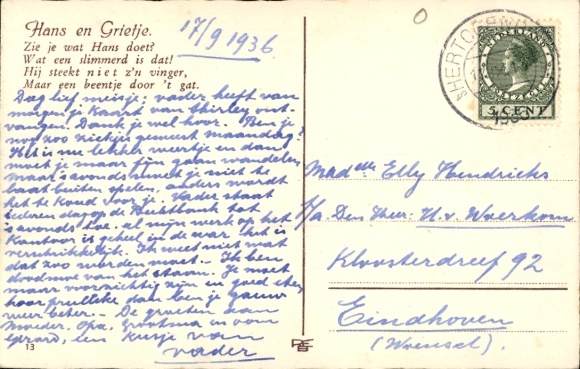 Hans en Grietje.
Zie je wat Hans doet?
Wat een slimmerd is dat!
Hij steekt niet z'n vinger,
Maar een beentje door 't gat.
17/9 1936
Dag lief meisje; vader heeft van
morgen je kaart van Shirley ont-
vangen. Dank je wel hoor. Ben je
nog zoo ziekjes geweest maandag?
Het is nu lekker weertje en dan
moet je maar fijn gaan wandelen
maar 's avonds moet je niet te
laat buiten spelen, anders wordt
het te koud voor je. Vader staat
iederen dag op de Rechtbank tot
's avonds toe. al mijn werk op het
Kantoor is geheel in de war. het is
verschrikkelijk. Ik weet niet wat
dat zoo worden moet. - Ik ben
doodmoe van het staan. Je moet
maar voorzichtig zijn en goed eten
hoor prulleke dan ben je gauw
weer beter. - De groeten aan
Moeder. Opa. Grootma en oom
Gerard, een kusje van
vader
13
Madelle Elly Hendricks
p/a Den Heer H. v. Woerkom
Kloosterdreef 92
Eindhoven
(Woensel.)
NEDERLAND
5 CENT